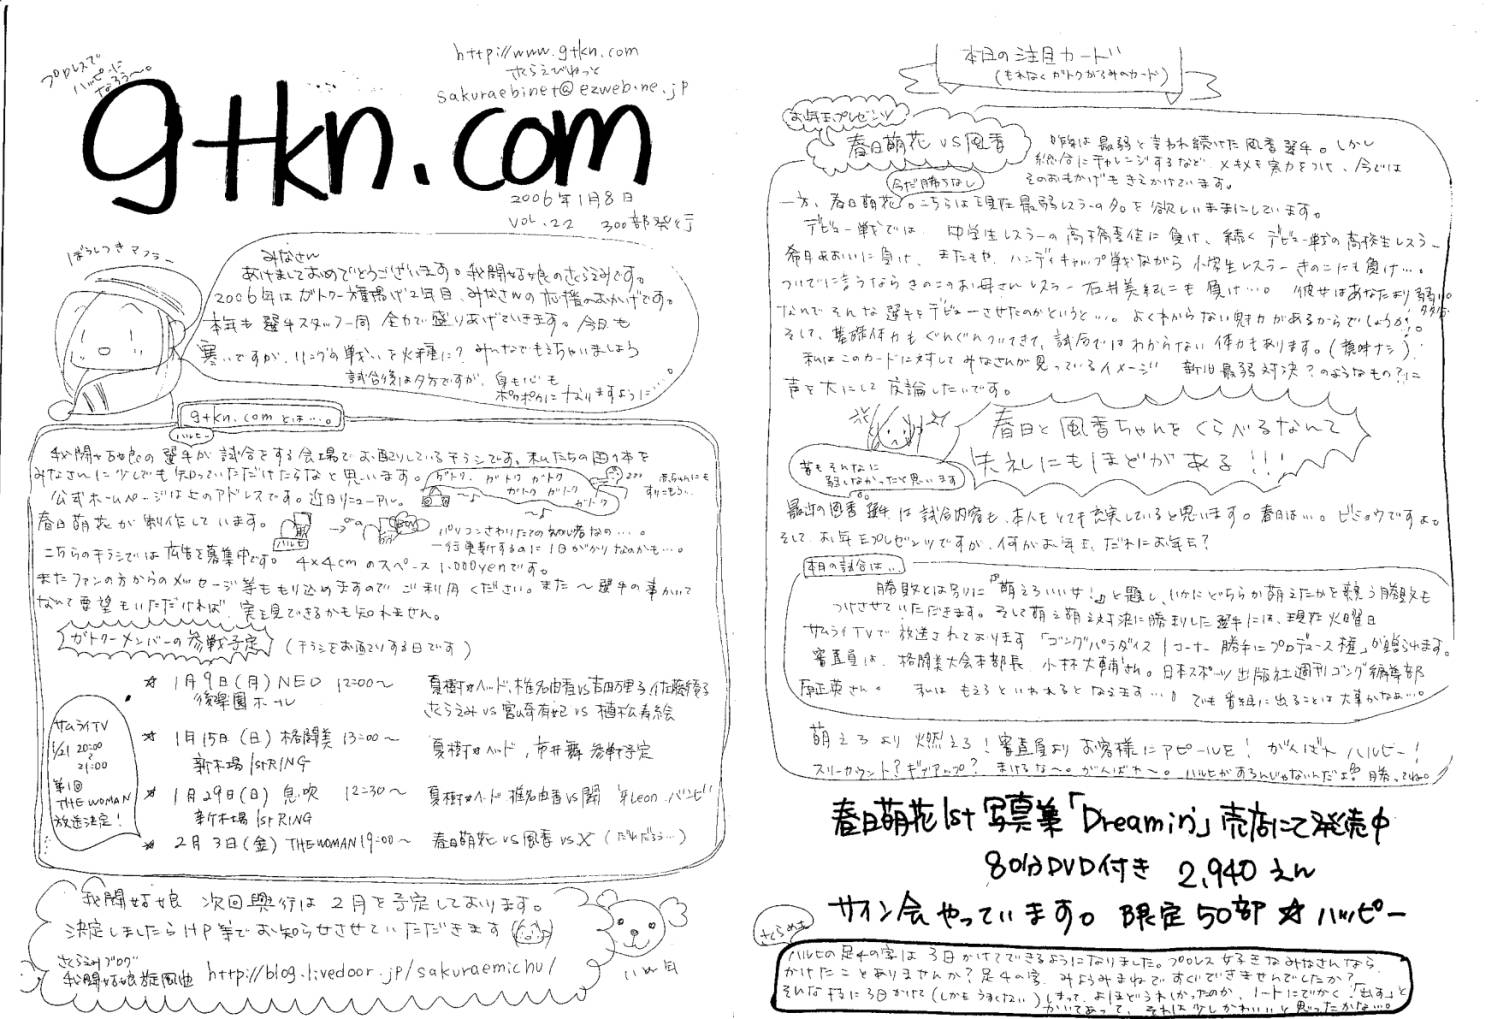 プロレスで
ハッピーに
なろう〜。
http://www.gtkn.com
さくらえびねっと
sakuraebinet@ezweb.ne.jp
gtkn.com
2006年1月8日
VOL.22 300部発行
ぼうしつきマフラー
みなさん
あけましておめでとうございます。我闘姑娘のさくらえみです。
2006年はガトクー旗揚げ2年目、みなさんの応援のおかげです。
本年も選手スタッフ一同 全力で盛りあげていきます。今日も
寒いですが、リングの戦いを火種に? みんなでもえちゃいましょう
試合後は夕方ですが、身も心も
ポカポカになりますように…。
gtkn.comとは…。
ハルピー
我闘姑娘の選手が試合をする会場でお配りしているチラシです。私たちの日々を
みなさんに少しでも知っていただけたらなと思います。
ガトク ガトク ガトク
ガトク ガトク
ガトク
赤ちゃんにも
すりこもう…
公式ホームページは上のアドレスです。近日リニューアル。
春日萌花が制作しています。
ハルピ
パソコンさわりたての初心者なの…。
一行更新するのに1日がかりなのかも…。
こちらのチラシでは広告を募集中です。4×4cmのスペース1.000yenです。
またファンの方からのメッセージ等ももり込めますので ご利用ください。また 〜選手の事かいて
なんて要望もいただければ 実現できるかも知れません。
ガトクーメンバーの参戦予定 (チラシをお配りする日です)
サムライTV
1/21 20:00
〜
21:00
第1回
THE WOMAN
放送決定!
☆ 1月9日(月) NEO 12:00〜
後楽園ホール
夏樹☆ヘッド,椎名由香vs吉田万里子,佐藤綾子
さくらえみvs宮崎有妃vs植松寿絵
☆ 1月15日(日) 格闘美 13:00〜
新木場1stRING
夏樹☆ヘッド,市井舞 参戦予定
☆ 1月29日(日) 息吹 12:30〜
新木場1stRING
夏樹☆ヘッド 椎名由香vs闘牙Leon バンビ
☆ 2月3日(金) THE WOMAN 19:00〜 春日萌花vs風香vsX (だれだろう…)
我闘姑娘 次回興行は2月を予定しております。
決定しましたらHP等でお知らせさせていただきます
さくらえみブログ
我闘姑娘旋風曲 http://blog.livedoor.jp/sakuraemichu/
いぬ年
本日の注目カード
(もれなくガトクがらみのカード)
お年玉プレゼンツ
春日萌花vs風香
昨年は最弱と言われ続けた風香選手。しかし
総合にチャレンジするなど、メキメキ実力をつけ、今では
そのおもかげもきえかけています。
今だ勝ちなし
一方、春日萌花。こちらは現在最弱レスラーの名を欲しいままにしています。
デビュー戦では 中学生レスラーの高橋夏佳に負け、続くデビュー戦の高校生レスラー
希月あおいに負け、またもや、ハンディキャップ戦ながら小学生レスラーきのこにも負け…。
ついでに言うならきのこのお母さんレスラー石井美紀にも負け…。 彼女はあなたより弱い。
タブン
なんでそんな選手をデビューさせたのかというと…。よくわからない魅力があるからでしょうか?
そして、基礎体力もぐんぐんついてきて、試合ではわからない体力もあります。(意味ナシ)
私はこのカードに対してみなさんが思っているイメージ 新旧最弱対決?のようなもの?に
声を大にして反論したいです。
春日と風香ちゃんをくらべるなんて
失礼にもほどがある!!!
昔もそんなに
弱くなかったと思います
最近の風香選手は試合内容も、本人もとても充実していると思います。春日は…。ビミョウですよ。
そして、お年玉プレゼンツですが、何がお年玉、だれにお年玉?
本日の試合は…
勝敗とは別に『萌えろいい女!』と題し、いかにどちらが萌えたかを競う勝敗も
つけさせていただきます。そして萌え萌え対決に勝利した選手には、現在火曜日
サムライTVで放送されております「ゴングパラダイス1コーナー勝手にプロデュース権」が贈られます。
審査員は、格闘美大会本部長 小林大輔さん。日本スポーツ出版社週刊ゴング編集部
原正英さん。 私は もえろといわれるとなえます…。 でも番組に出ることは大事かなぁ…。
萌えろより 燃えろ! 審査員より お客様にアピールを! がんばれ ハルピー!
スリーカウント? ギブアップ? まけるな〜。がんばれ〜。ハルピがあるんじゃないんだよ? 勝ってね。
春日萌花1st写真集「Dreamin'」売店にて発売中
80分DVD付き 2,940えん
サイン会やっています。限定50部☆ハッピー
さくらめも
ハルピの足4の字は 3日かけてできるようになりました。プロレス好きなみなさんなら
かけたことありませんか? 足4の字 みようみまねですぐできませんでしたか?
そんな技に3日かけて(しかもうまくない)しまって、よほどうれしかったのか、ノートにでかく「出す」と
かいてあって、それは少しかわいいと思ったかな…。